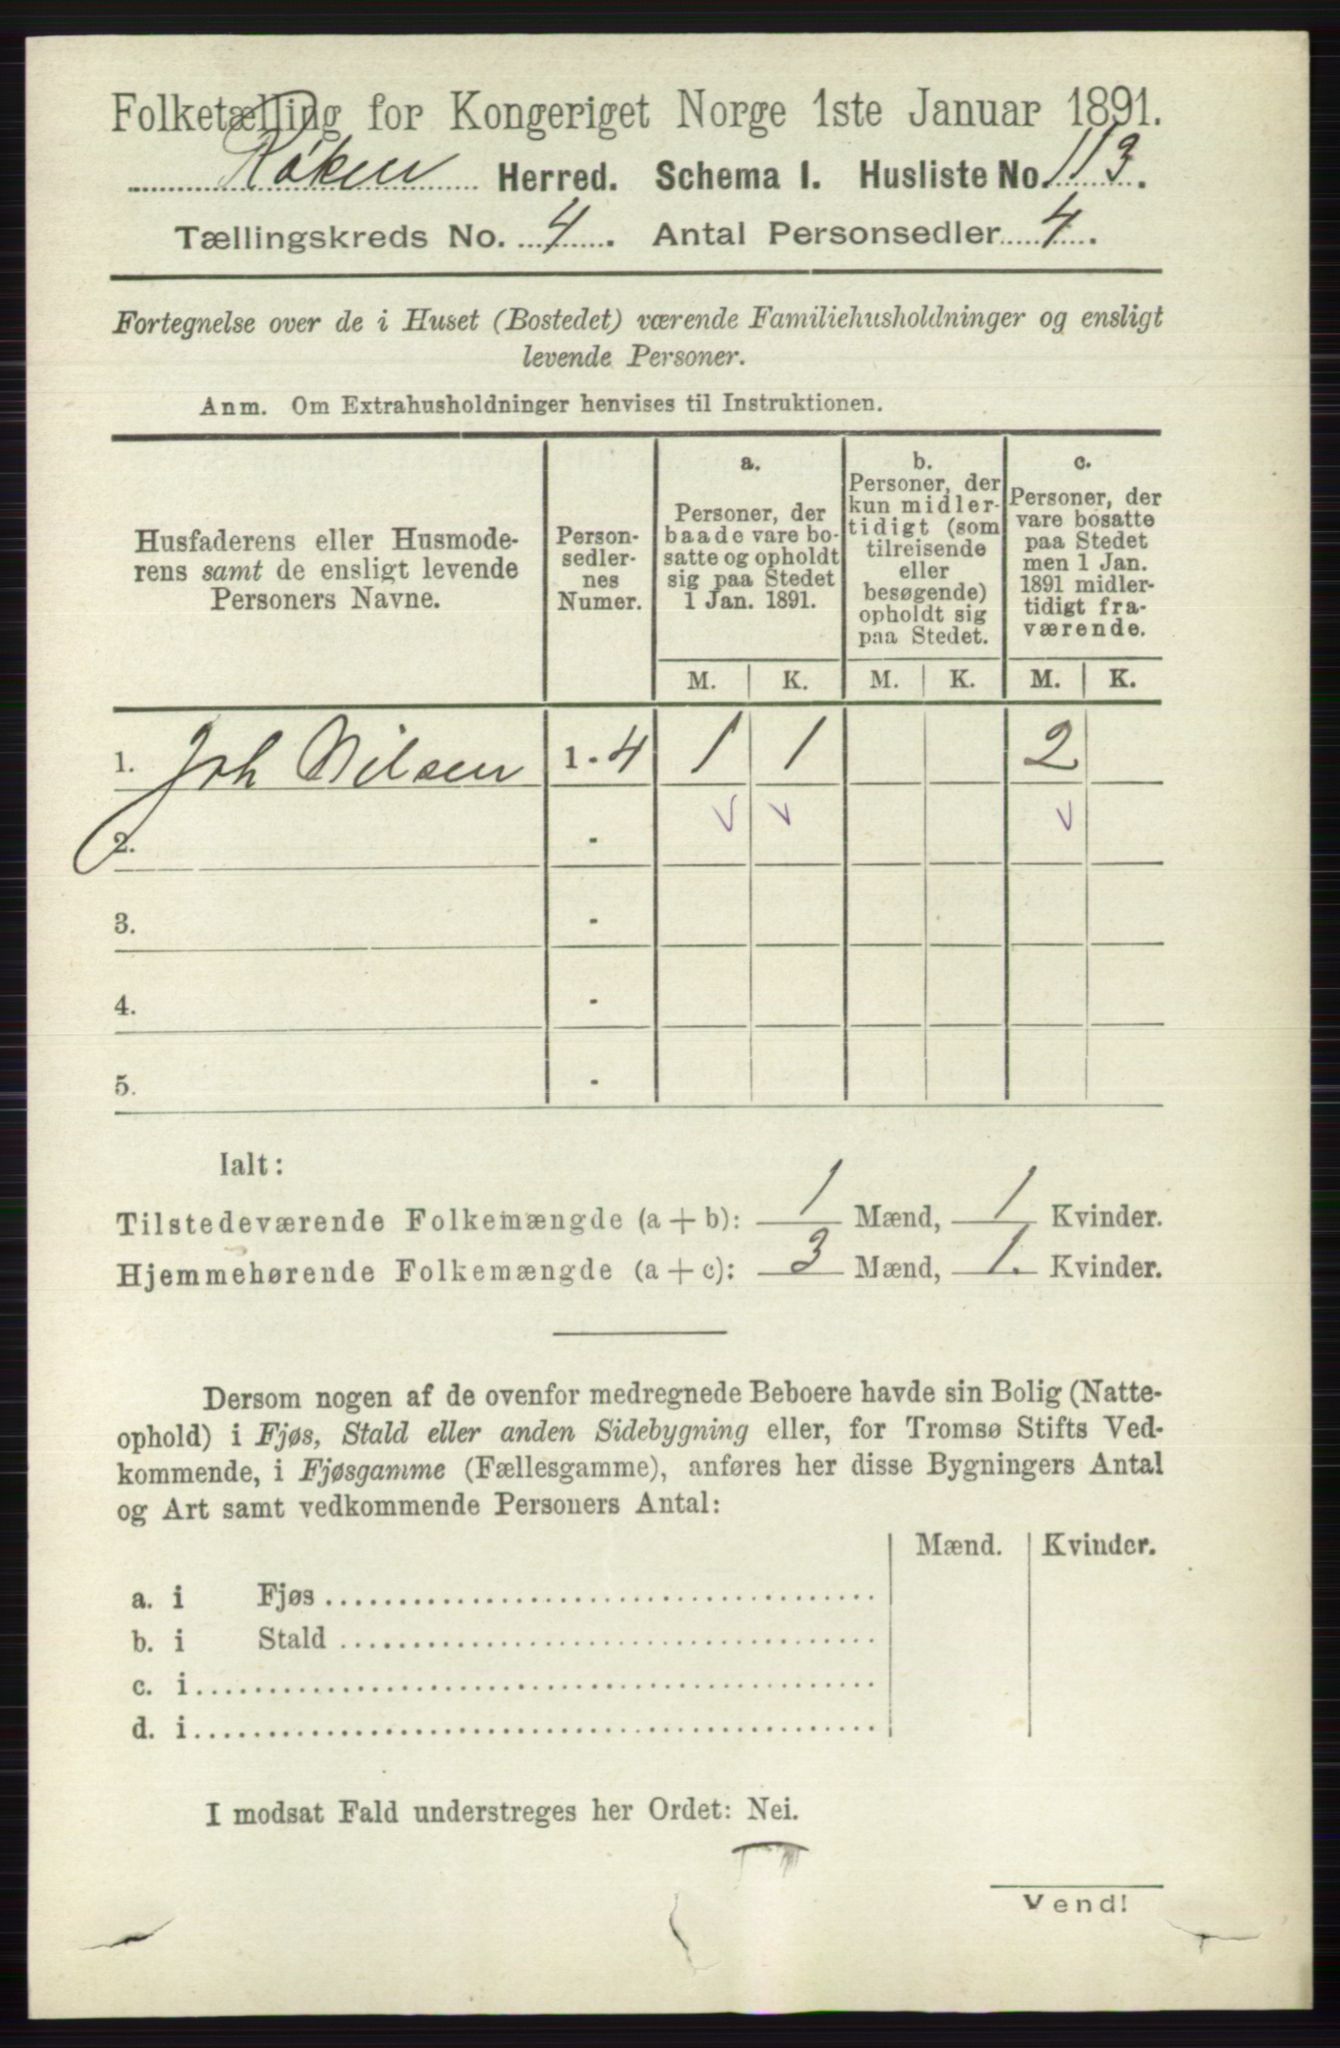 Folketælling for Kongeriget Norge 1ste Januar 1891.
Røken Herred. Schema I. Husliste No. 113.
Tællingskreds No. 4. Antal Personsedler 4.
Fortegnelse over de i Huset (Bostedet) værende Familiehusholdninger og ensligt
levende Personer.
Anm. Om Extrahusholdninger henvises til Instruktionen.
Husfaderens eller Husmode-
rens samt de ensligt levende
Personers Navne.
Person-
sedler-
nes
Numer.
a.
Personer, der
baade vare bo-
satte og opholdt
sig paa Stedet
1 Jan. 1891.
b.
Personer, der
kun midler-
tidigt (som
tilreisende
eller
besøgende)
opholdt sig
paa Stedet.
c.
Personer, der
vare bosatte
paa Stedet
men 1 Jan.
1891 midler-
tidigt fra-
værende.
M. K. M. K. M. K.
1. Joh Nilsen 1-4 1 1 2
2. -
3. -
4. -
5. -
Ialt:
Tilstedeværende Folkemængde (a + b): 1 Mænd, 1 Kvinder.
Hjemmehørende Folkemængde (a + c): 3 Mænd, 1. Kvinder.
Dersom nogen af de ovenfor medregnede Beboere havde sin Bolig (Natte-
ophold) i Fjøs, Stald eller anden Sidebygning eller, for Tromsø Stifts Ved-
kommende, i Fjøsgamme (Fællesgamme), anføres her disse Bygningers Antal
og Art samt vedkommende Personers Antal:
Mænd. Kvinder.
a. i Fjøs
b. i Stald
c. i
d. i
I modsat Fald understreges her Ordet: Nei.
Vend!